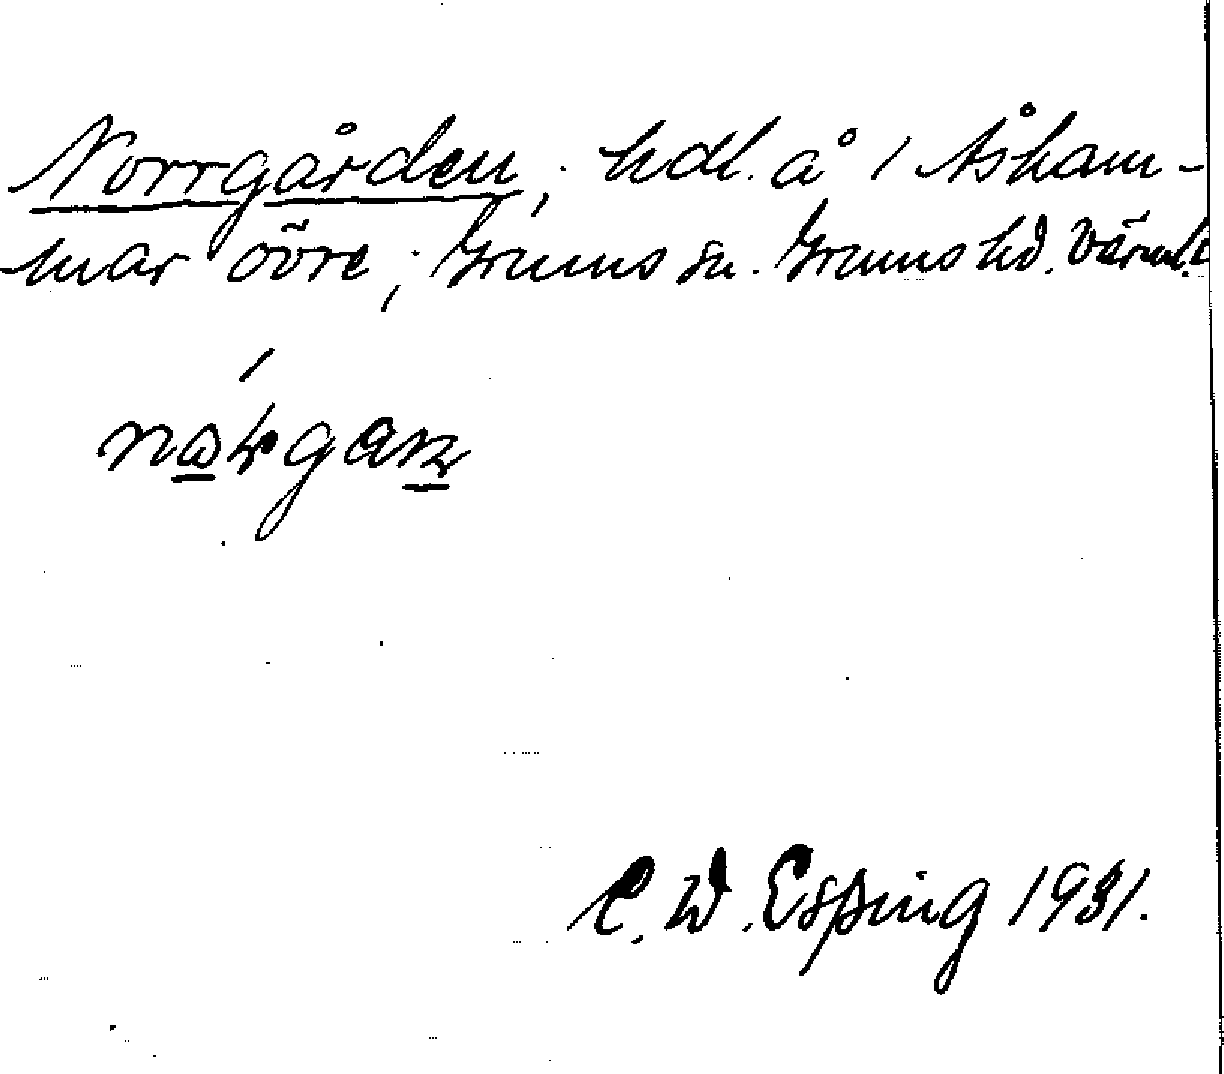 Norrgården, hdl. å 1 Åsham-
mar övre, Grums sn. Grums hd. Värml.
C. W. Esping 1931.